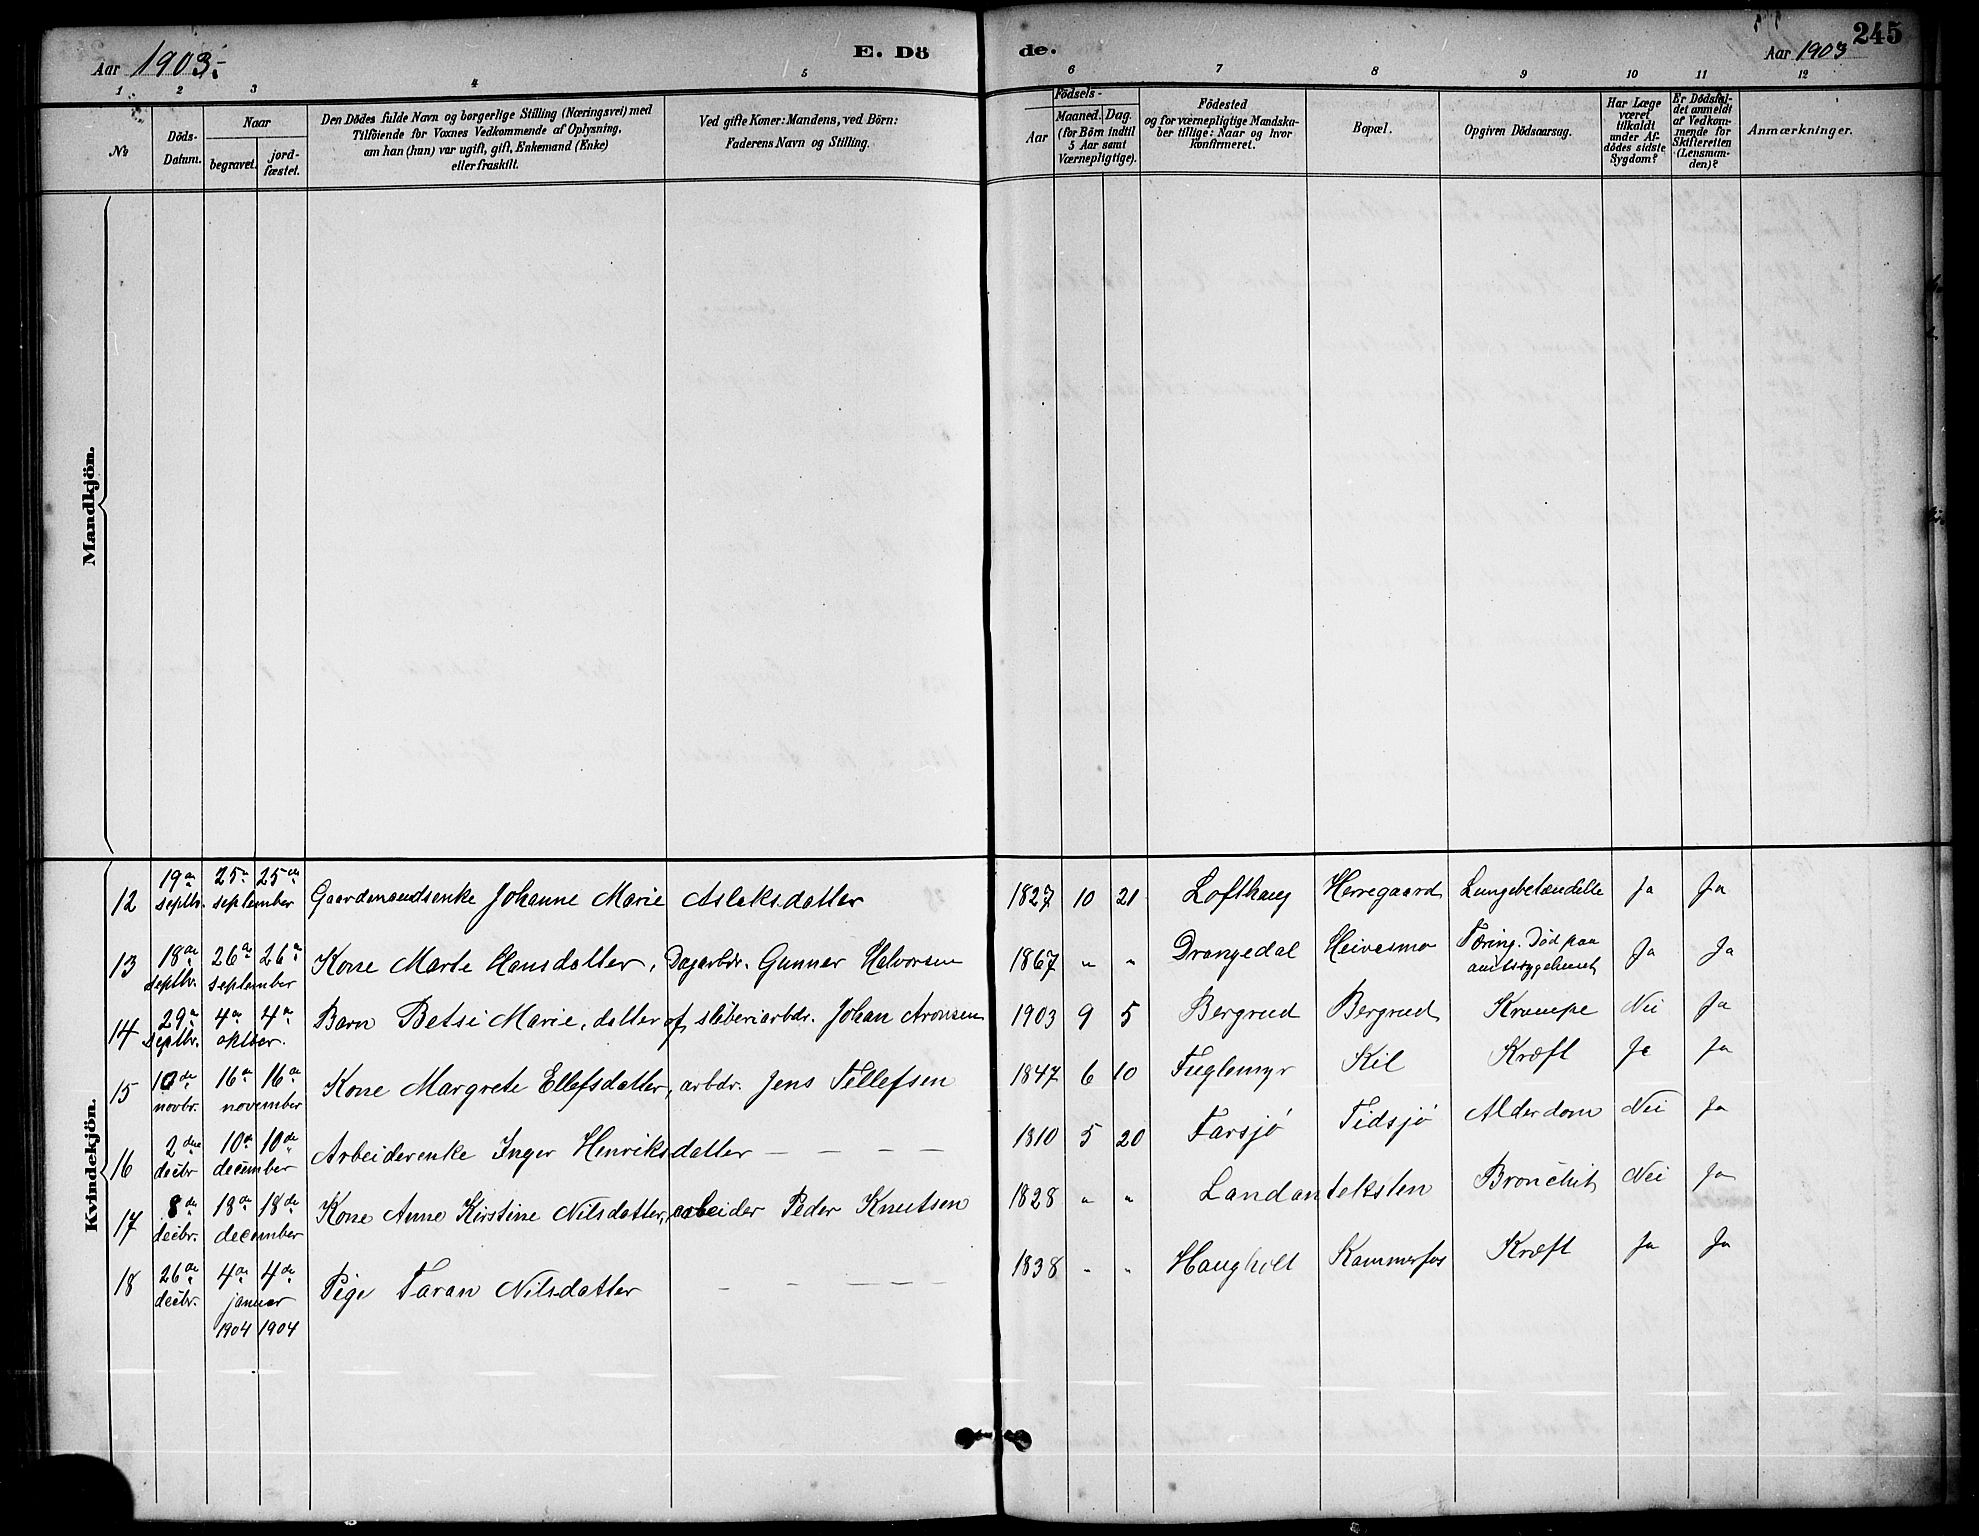 Aar 1903.
E. Dö
de.
Aar 1903
245
1 2 3 4 5 6 7 8 9 10 11 12
No
Döds-Datum.
Naar
begravet.
jordfæstet.
Den Dödes fulde Navn og borgerlige Stilling (Næringsvei) med
Tilföiende for Voxnes Vedkommende af Oplysning,
om han (hun) var ugift, gift, Enkemand (Enke)
eller fraskilt.
Ved gifte Koner: Mandens, ved Börn:
Faderens Navn og Stilling.
Födsels-
Aar
Maaned. Dag.
(for Börn indtil
5 Aar samt
Værnepligtige).
Födested
og for værnepligtige Mandskaber tillige: Naar og hvor
konfirmeret.
Bopæl.
Opgiven Dödsaarsag.
Har Læge
været
tilkaldt
under Afdödes sidste
Sygdom?
Er Dödsfaldet anmeldt
af Vedkommende for
Skifteretten
(Lensmanden)?
Anmærkninger.
Mandkjön.
Kvindekjön.
12 19de septbr. 25de 25de september Gaardmandsenke Johanne Marie Aslaksdatter 1827 10 21 Lofthaug Herregaard Lungebetændelse Ja Ja
13 18de septbr. 26de 26de september Kone Marte Hansdatter, Dagarbdr. Gunner Halvorsen 1867 " " Drangedal Heivesmo Tæring. Död paa amtssygehuset Ja Ja
14 29de septbr. 4de 4de oktober. Barn Betsi Marie, datter af sliberiarbdr. Johan Aronsen 1903 9 5 Bergrud Bergrud Krampe Nei Ja
15 10de novbr. 16de 16de november Kone Margrete Ellefsdatter, arbdr. Jens Tellefsen 1847 6 10 Fuglemyr Kil Kræft Ja Ja
16 2den decbr 10de 10de december Arbeiderenke Inger Henriksdatter — — — — 1810 5 20 Farsjö Tidsjö Alderdom Nei Ja
17 8de decbr. 18de 18de december Kone Anne Kirstine Nilsdatter, arbeider Peder Knutsen 1828 " " Landanteksten Bronchit Nei Ja
18 26de decbr. 4de 4de januar 1904 1904 Pige Taran Nilsdatter — — — — — 1838 " " Haugholt Kammerfos Kræft Ja Ja